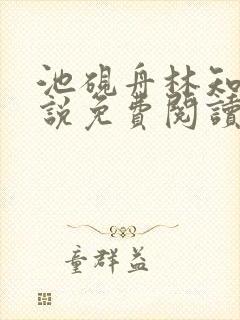 池硯舟林知
說免費閱讀
童群益